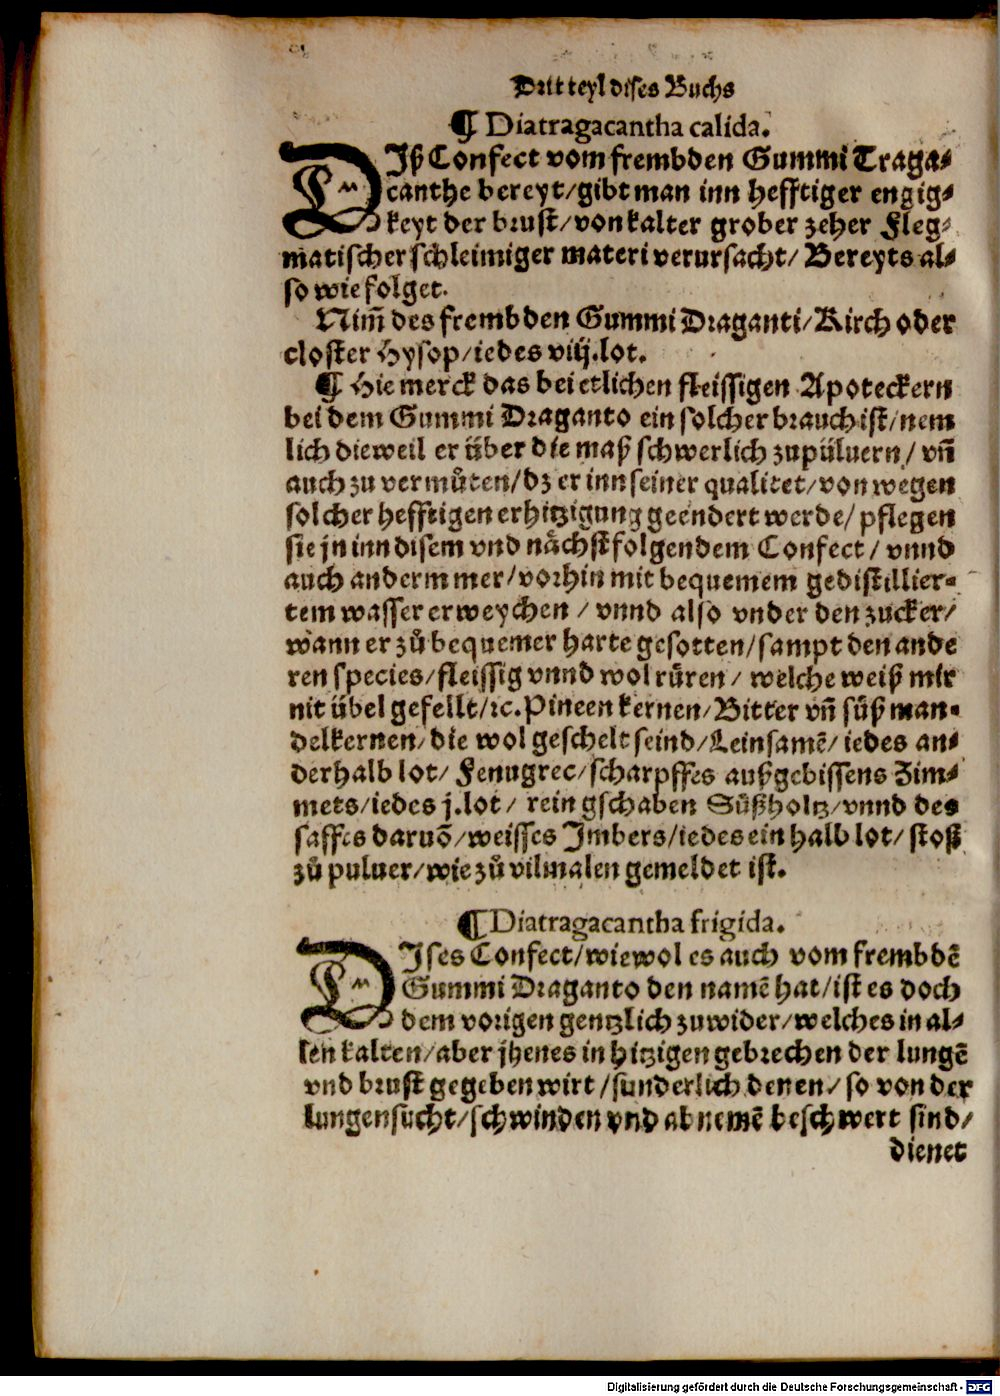 Drit teyl dises Buchs
¶ Diatragacantha calida.
DJß Confect vom frembden Gummi Traga⸗
canthe bereyt/gibt man inn hefftiger engig⸗
keyt der brust/von kalter grober zeher Fleg⸗
matischer schleimiger materi verursacht/ Bereyts al⸗
so wie folget.
Nim̃ des frembden Gummi Draganti/Kirch oder
closter Hysop/iedes viij.lot.
¶ Hie merck das bei etlichen fleissigen Apoteckern
bei dem Gummi Draganto ein solcher brauch ist/nem
lich dieweil er über die maß schwerlich zupülvern/ vñ
auch zu vermůten/dz er inn seiner qualitet/von wegen
solcher hefftigen erhitzigung geendert werde/ pflegen
sie jn inn disem vnd nåchstfolgendem Confect/ vnnd
auch anderm mer/vorhin mit bequemem gedistillier⸗
tem wasser erweychen/ vnnd also vnder den zucker/
wann er zů bequemer harte gesotten/sampt den ande
ren species/fleissig vnnd wol růren/ welche weiß mir
nit übel gefellt/ꝛc.Pineen kernen/Bitter vñ süß man⸗
delkernen/die wol geschelt seind/Leinsamẽ/iedes an⸗
derhalb lot/ Fenugrec/scharpffes außgebissens Zim⸗
mets/iedes j.lot/ rein gschaben Süßholtz/vnnd des
saffes daruõ/weisses Jmbers/iedes ein halb lot/ stoß
zů puluer/wie zů vilmalen gemeldet ist.
¶ Diatragacantha frigida.
DJses Confect/wiewol es auch vom frembdẽ
Gummi Draganto den namẽ hat/ist es doch
dem vorigen gentzlich zuwider/welches in al⸗
len kalten/aber jhenes in hitzigen gebrechen der lungẽ
vnd brust gegeben wirt/sunderlich denen/so von der
lungensucht/schwinden vnd abnemẽ beschwert sind/
dienet
Digitalisierung gefördert durch die Deutsche Forschungsgemeinschaft - DFG